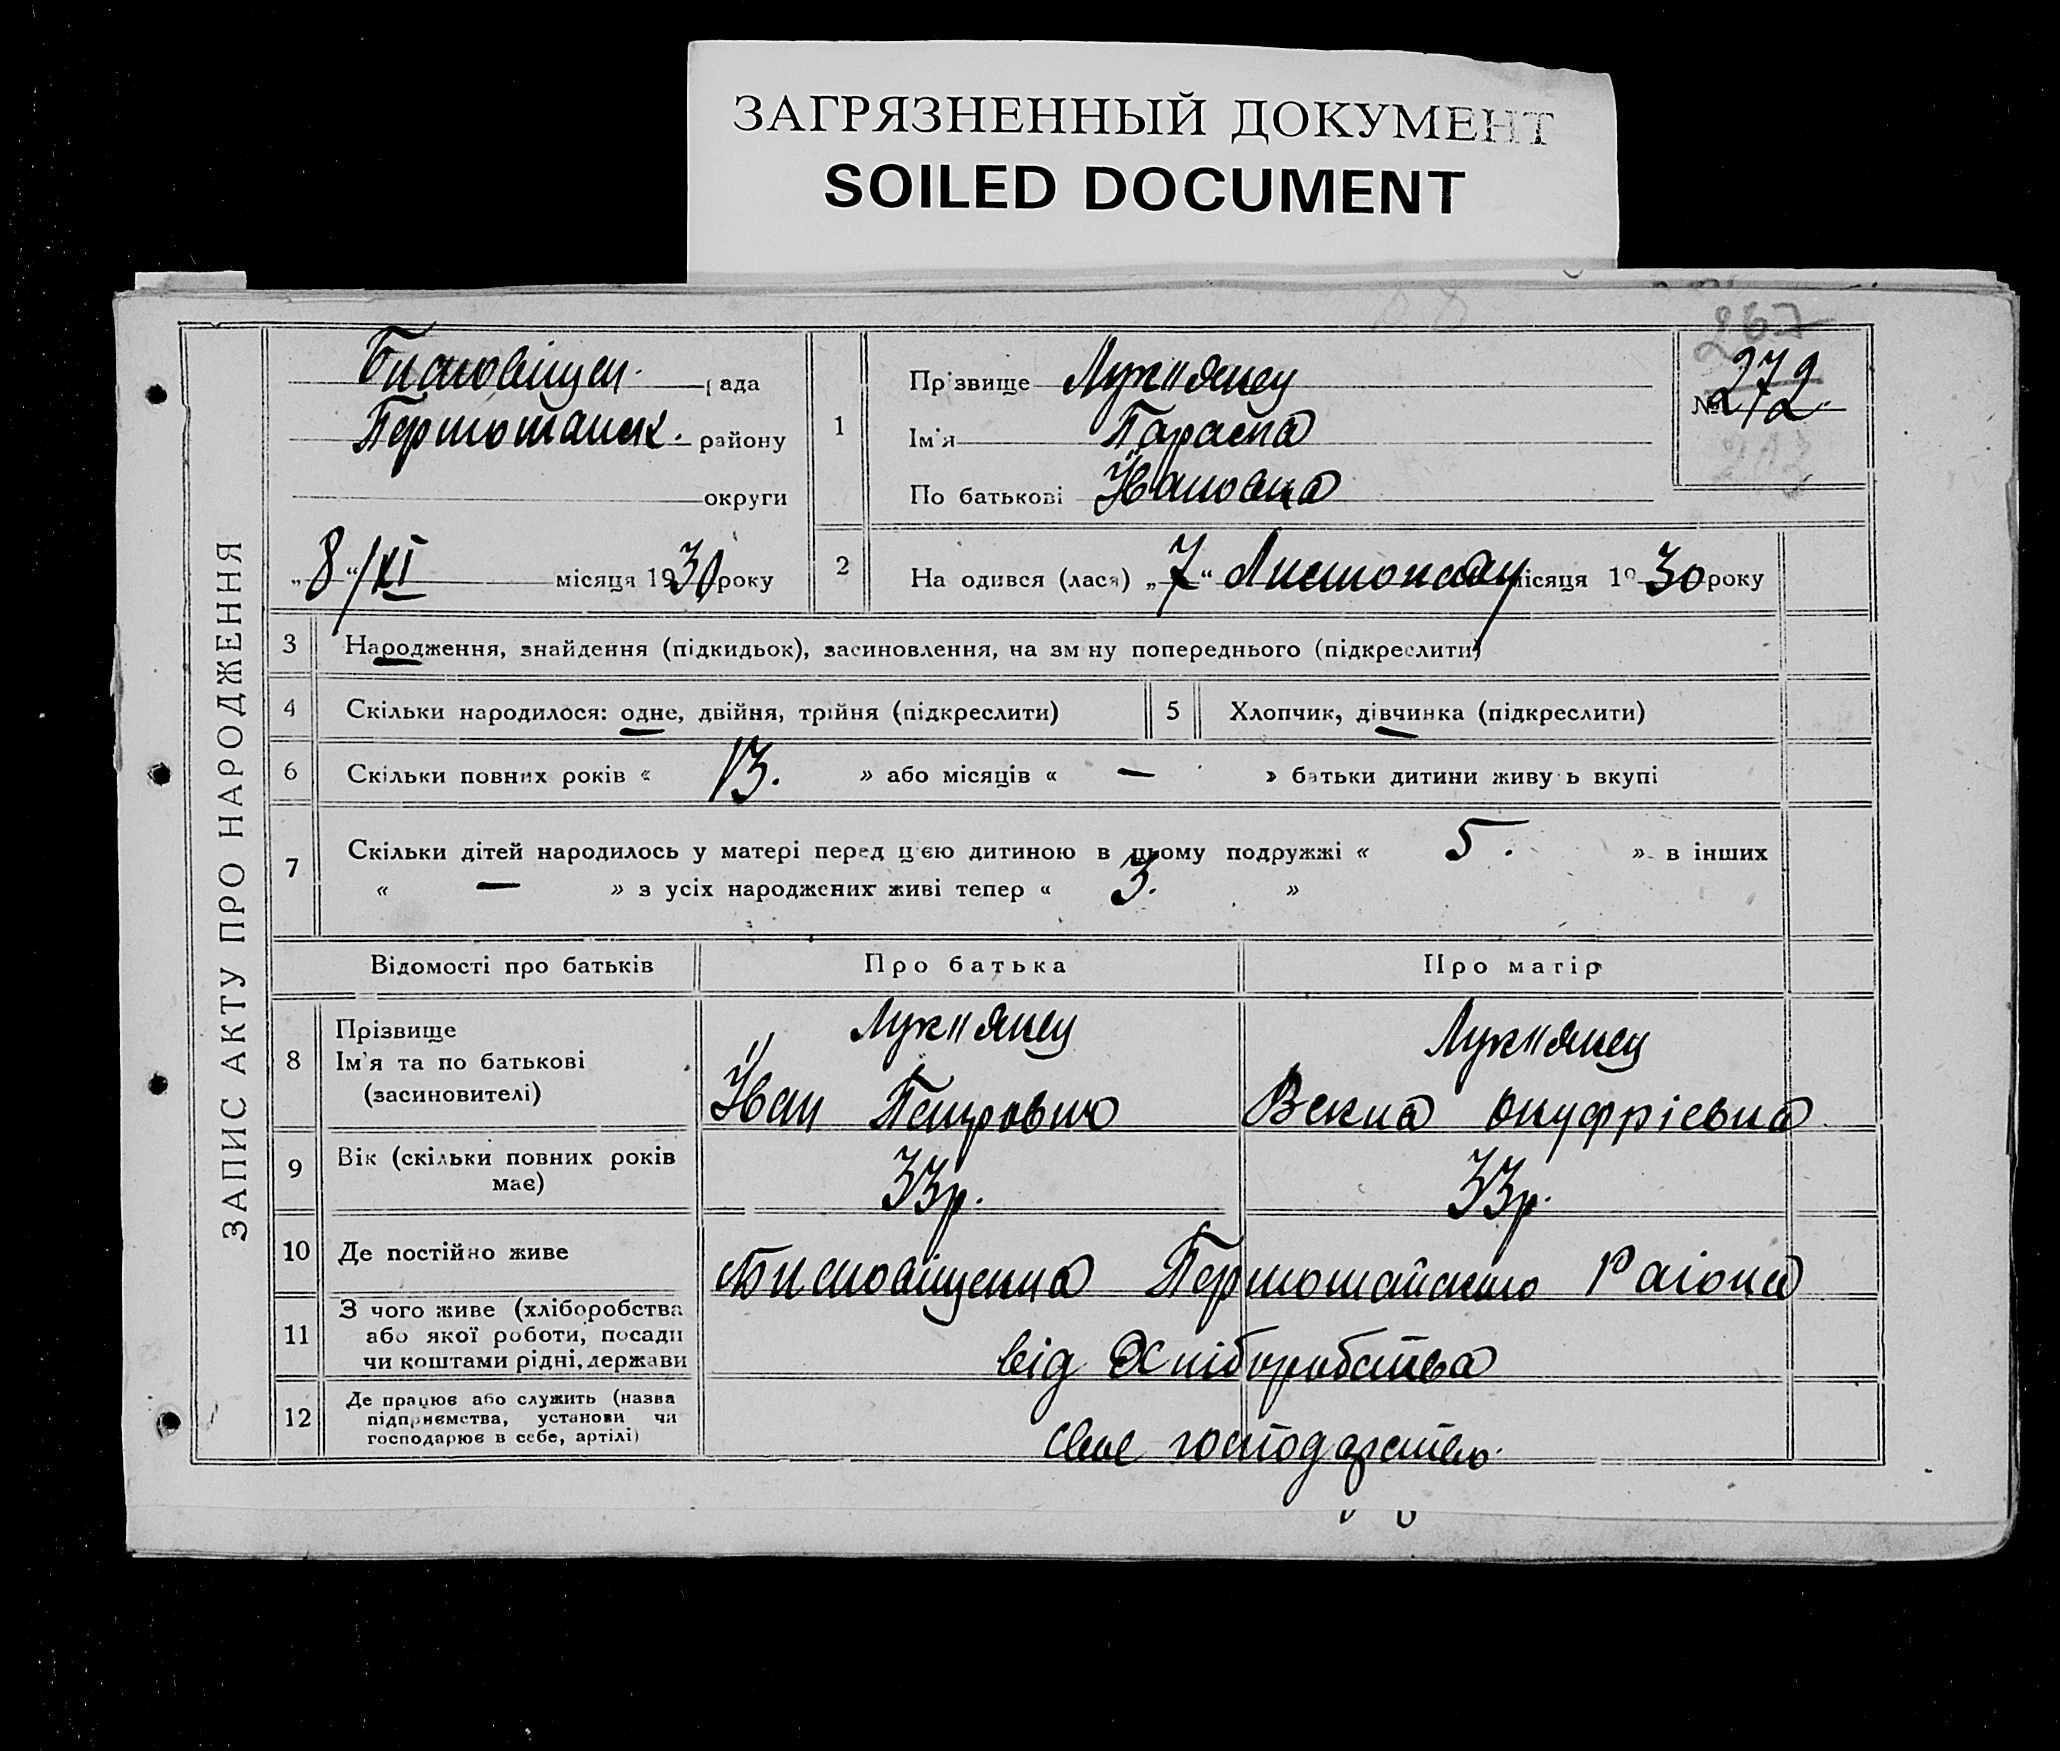 ЗАГРЯЗНЕННЫЙ ДОКУМЕНТ
SOILED DOCUMENT
267
ЗАПИС АКТУ ПРО НАРОДЖЕННЯ
рада
району
округи
„8“/XI місяця 1930 року
1
Прізвище Лук"янец
Ім'я Параска
По батькові Йвановна
№ 272.
2
Народився (лася) „7“ Листопаду місяця 1930 року
3
Народження, знайдення (підкидьок), засиновлення, на зміну попереднього (підкреслити)
4
Скільки народилося: одне, двійня, трійня (підкреслити)
5
Хлопчик, дівчинка (підкреслити)
6
Скільки повних років « 13. » або місяців « — » батьки дитини живуть вкупі
7
Скільки дітей народилось у матері перед цією дитиною в цьому подружжі « 5. » в інших
« — » з усіх народжених живі тепер « 3. »
Відомості про батьків
Про батька
Про матір
8
Прізвище
Ім'я та по батькові
(засиновителі)
Лук"янец
Йван Петрович
Лук"янец
Онуфріевна
9
Вік (скільки повних років
має)
33р.
33р.
10
Де постійно живе
Раіона
11
З чого живе (хліборобства
або якої роботи, посади
чи коштами рідні, держави
від Хліборобства
12
Де працює або служить (назва
підприємства, установи чи
господарює в себе, артілі)
свое господарство.